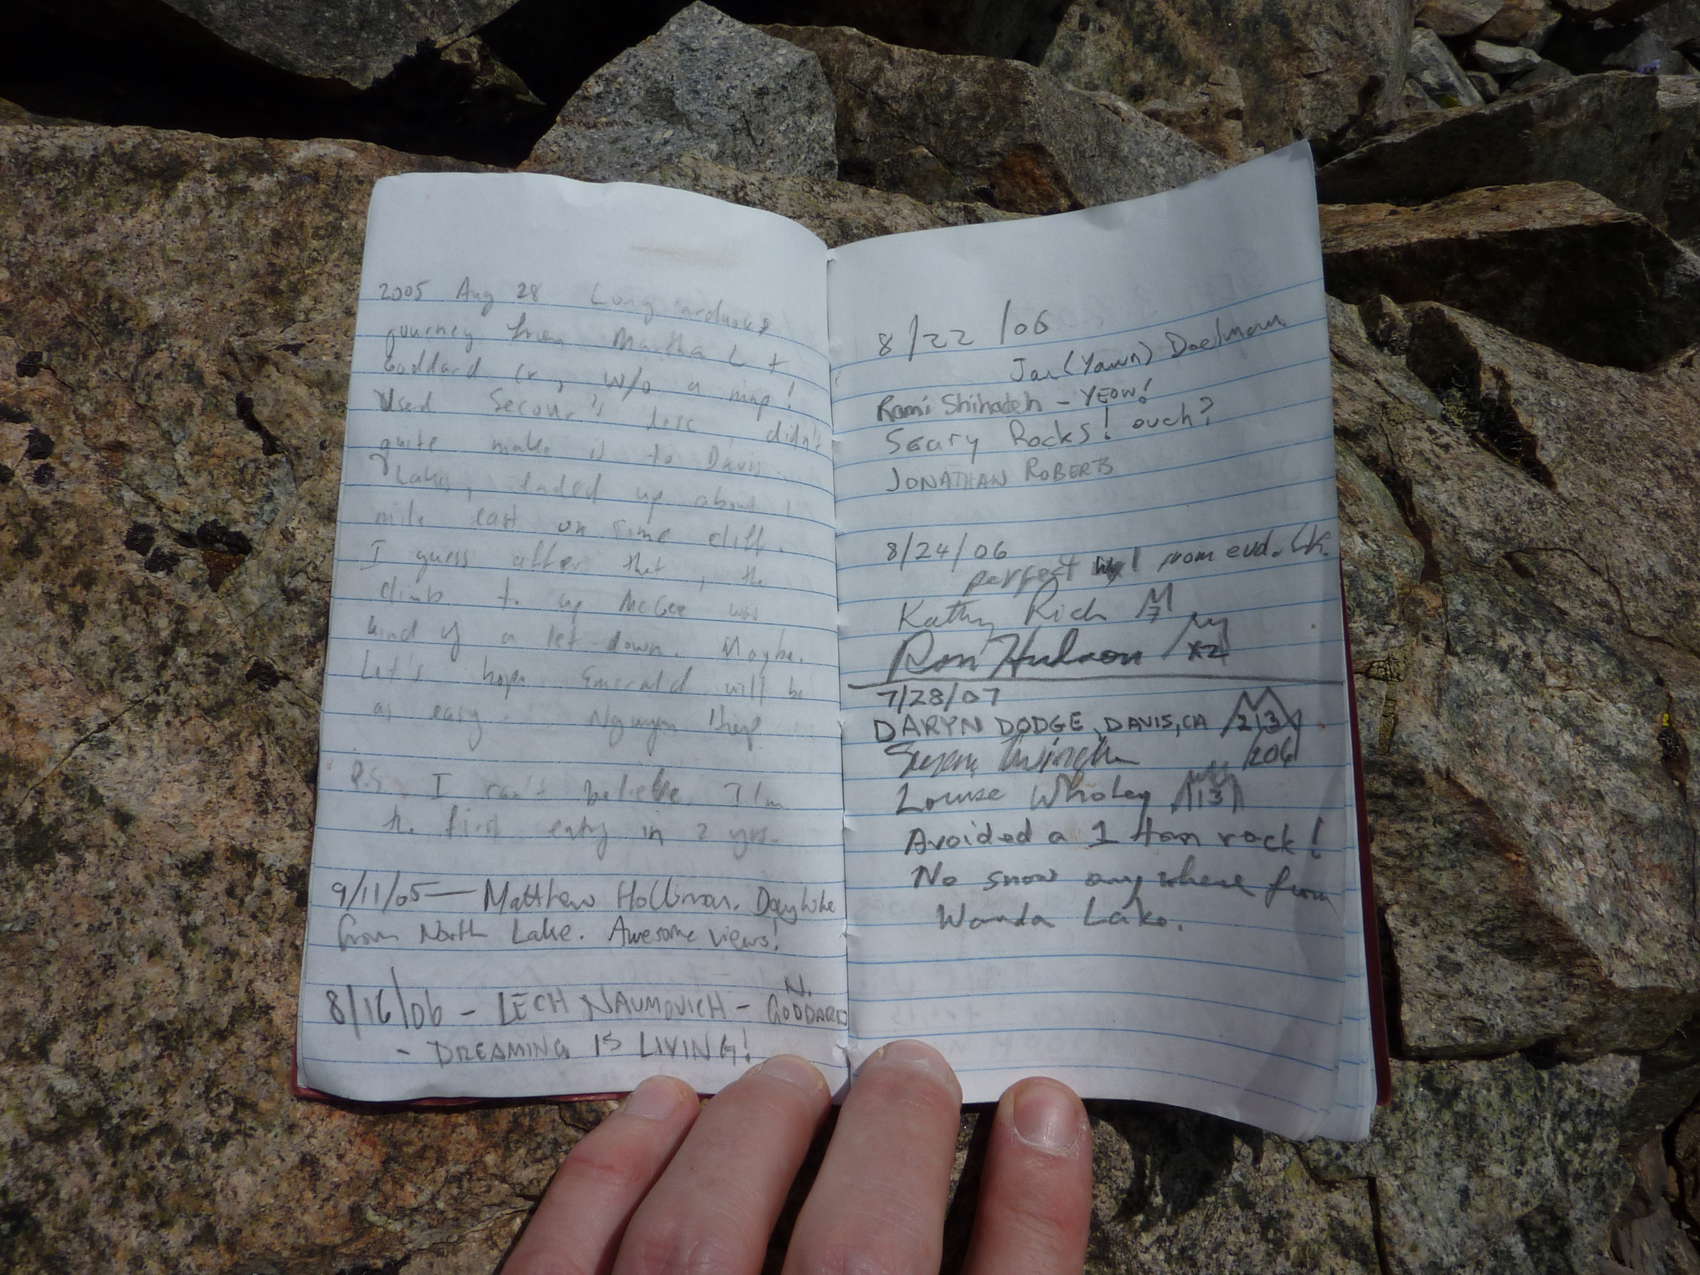 2005 Aug 28 Long arduous
journey from Martha L +
Goddard cr, w/o a map!
Used Secor's desc, didn't
quite make it to Davis
Lakes, ended up about 1
mile east on some cliff.
I guess after that, the
climb to up McGee was
kind of a let-down. Maybe.
Let's hope Emerald will be
as easy.
P.S. I can't believe I'm
the first entry in 2 yrs.
9/11/05 — Matthew Holliman. Dayhike
from North Lake. Awesome views!
8/16/06 - LECH NAUMOVICH - N. GODDARD
- DREAMING IS LIVING!
8/22/06
Jan (Yawn) Daelman
Rami Shihadeh - YEOW!
Scary Rocks! ouch?
JONATHAN ROBERTS
8/24/06
perfect from evol. Lk.
Kathy Rich M 7
Ron Hudson x2
7/28/07
DARYN DODGE, DAVIS, CA 213
206
Louise Wholey 113
Avoided a 1 ton rock!
No snow anywhere from
Wanda Lake.